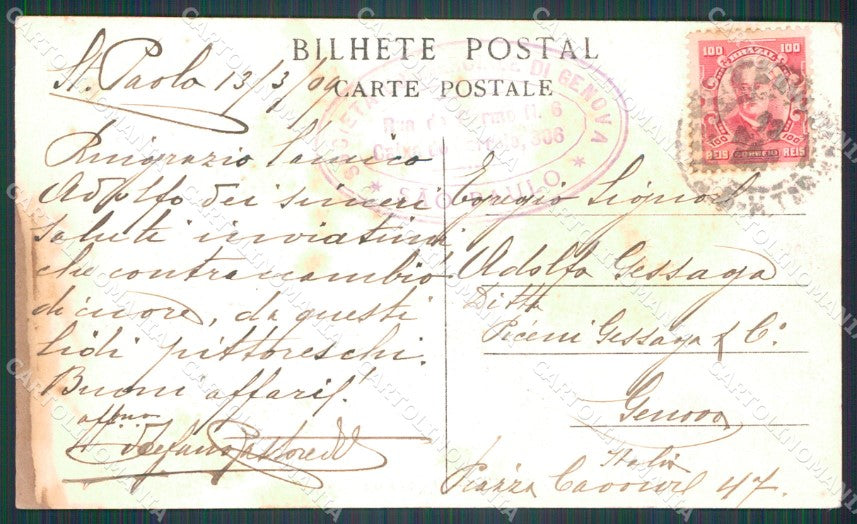 BILHETE POSTAL
CARTE POSTALE
St. Paolo 13/3/09
Ringrazio l'amico
Adolfo dei sinceri
saluti inviatimi
che contracambio
di cuore, da questi
lidi pittoreschi.
Buoni affari!
affmo
Stefano
SOCIETA DI GENOVA
Rua do Carmo N. 6
Caixa do Correio, 306
SÃO PAULO
100 BRAZIL 100
100 100
REIS CORREIO REIS
Egregio Signor
Adolfo Gessaga
Ditta
Piceni Gessaga & Co.
Genova
Italia
Piazza Cavour 47.
CARTOLINOMANIA